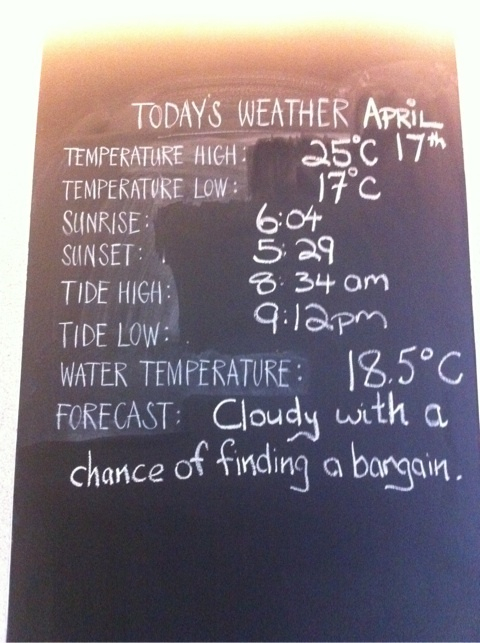 TODAY'S WEATHER APRIL 17th
TEMPERATURE HIGH: 25°C
TEMPERATURE LOW: 17°C
SUNRISE: 6:04
SUNSET: 5:29
TIDE HIGH: 8:34 am
TIDE LOW: 9:12pm
WATER TEMPERATURE: 18.5°C
FORECAST: Cloudy with a
chance of finding a bargain.